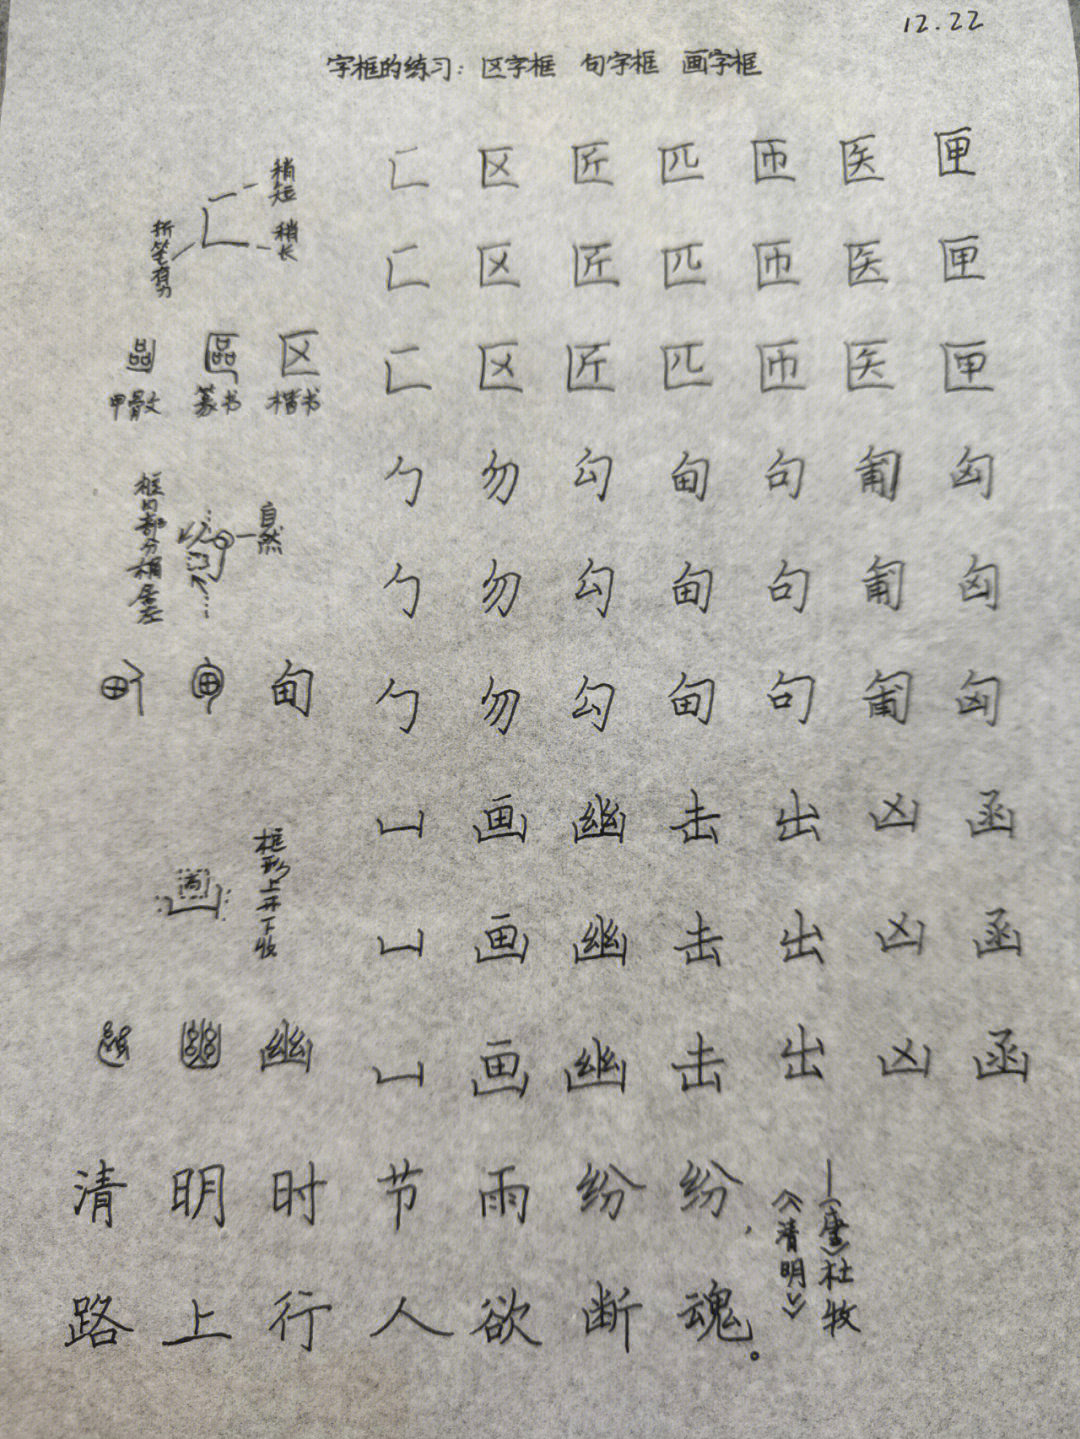 12.22
字框的练习：区字框 句字框 画字框
稍短
稍长
折笔有力
匚 区 匠 匹 匝 医 匣
匚 区 匠 匹 匝 医 匣
區 区
甲骨文 篆书 楷书
匚 区 匠 匹 匝 医 匣
框内部分稍居左
自然
勹 勿 勾 甸 句 匍 匈
勹 勿 勾 甸 句 匍 匈
甸
勹 勿 勾 甸 句 匍 匈
框形上开下收
凵 画 幽 击 出 凶 函
凵 画 幽 击 出 凶 函
幽
凵 画 幽 击 出 凶 函
清明时节雨纷纷，
路上行人欲断魂。
——（唐）杜牧
《清明》